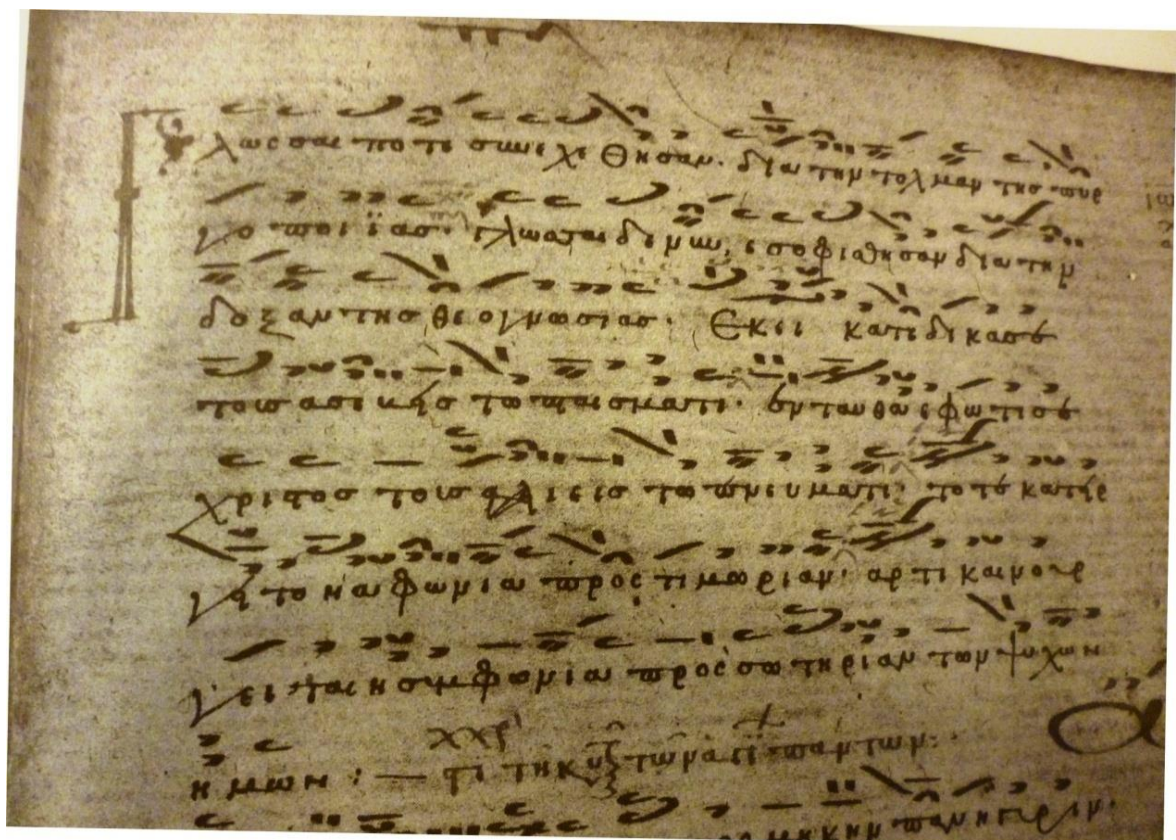 Γλωσσαι ποτε συνεχεθησαν· δια την τολμαν της πυρ
γοποιϊας· γλωσσαι δε νυν, εσοφισθησαν δια την
δοξαν της θεογνωσιας· Εκει κατεδικασε
τους ασεβεις τω πταισματι· ενταυθα εφωτισε
χριστος τους αλιεις τω πνευματι· τοτε κατηρ
γητο η αφωνια προς τιμωριαν· αρτι καινουρ
γειται η συμφωνια προς σωτηριαν των ψυχων
ημων :—
των αγι παντων·